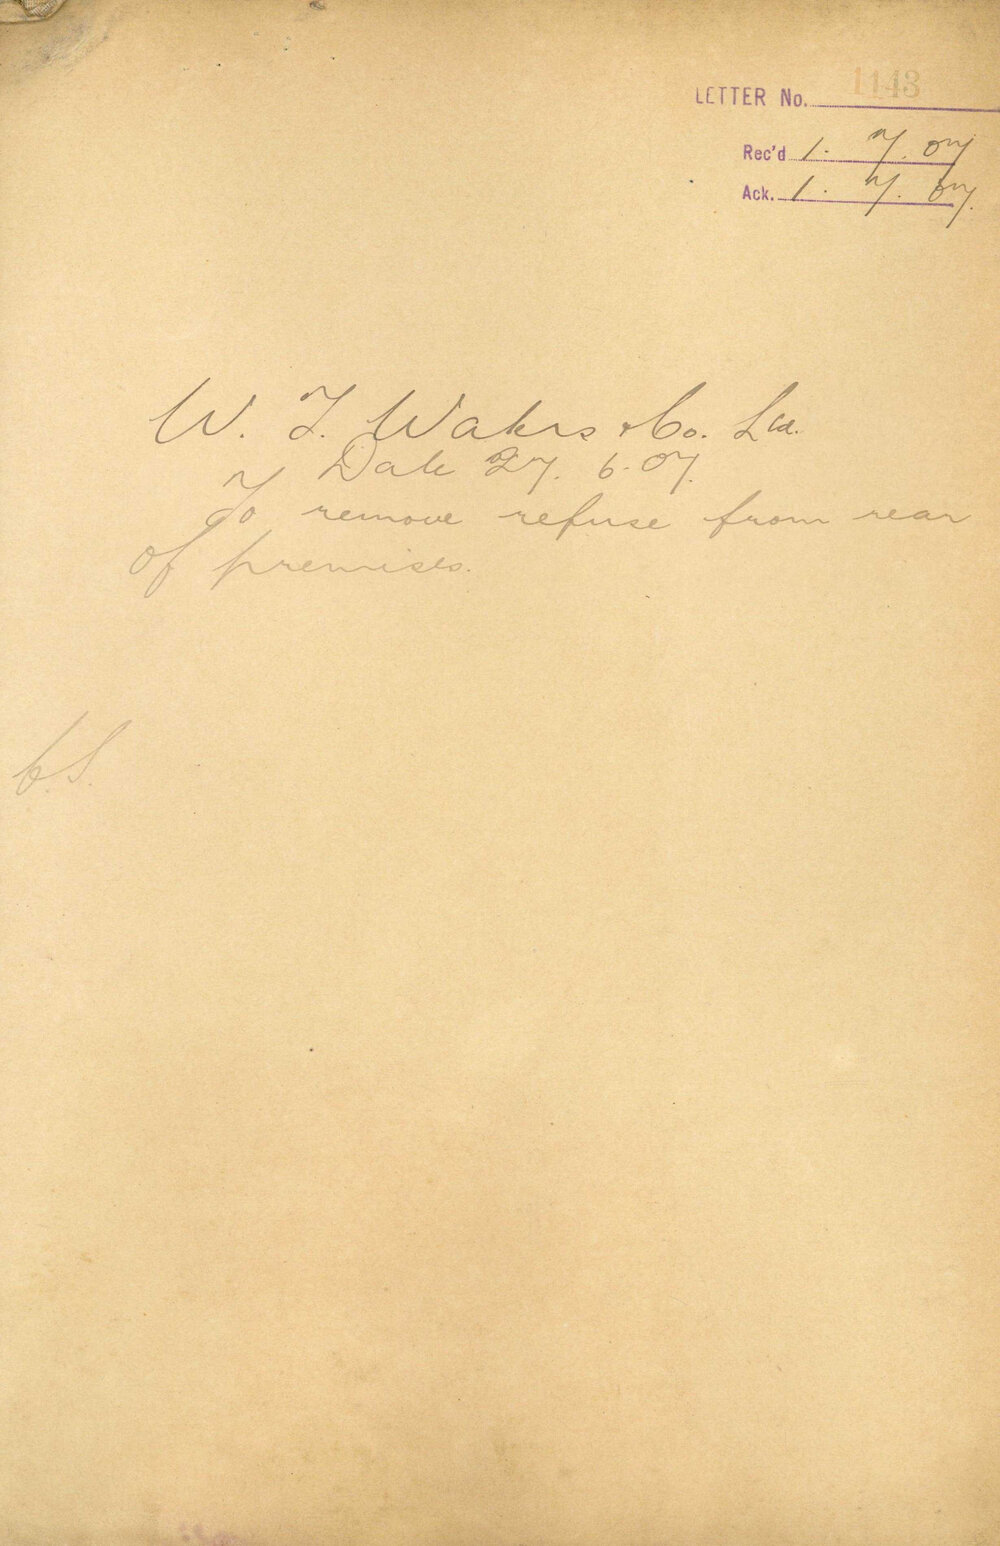 LETTER No. 1143
Rec'd 1. 7. 07
Ack. 1. 7. 07.
W. T. Waters & Co. Ltd.
Date 27. 6. 07.
To remove refuse from rear
of premises.
C.S.